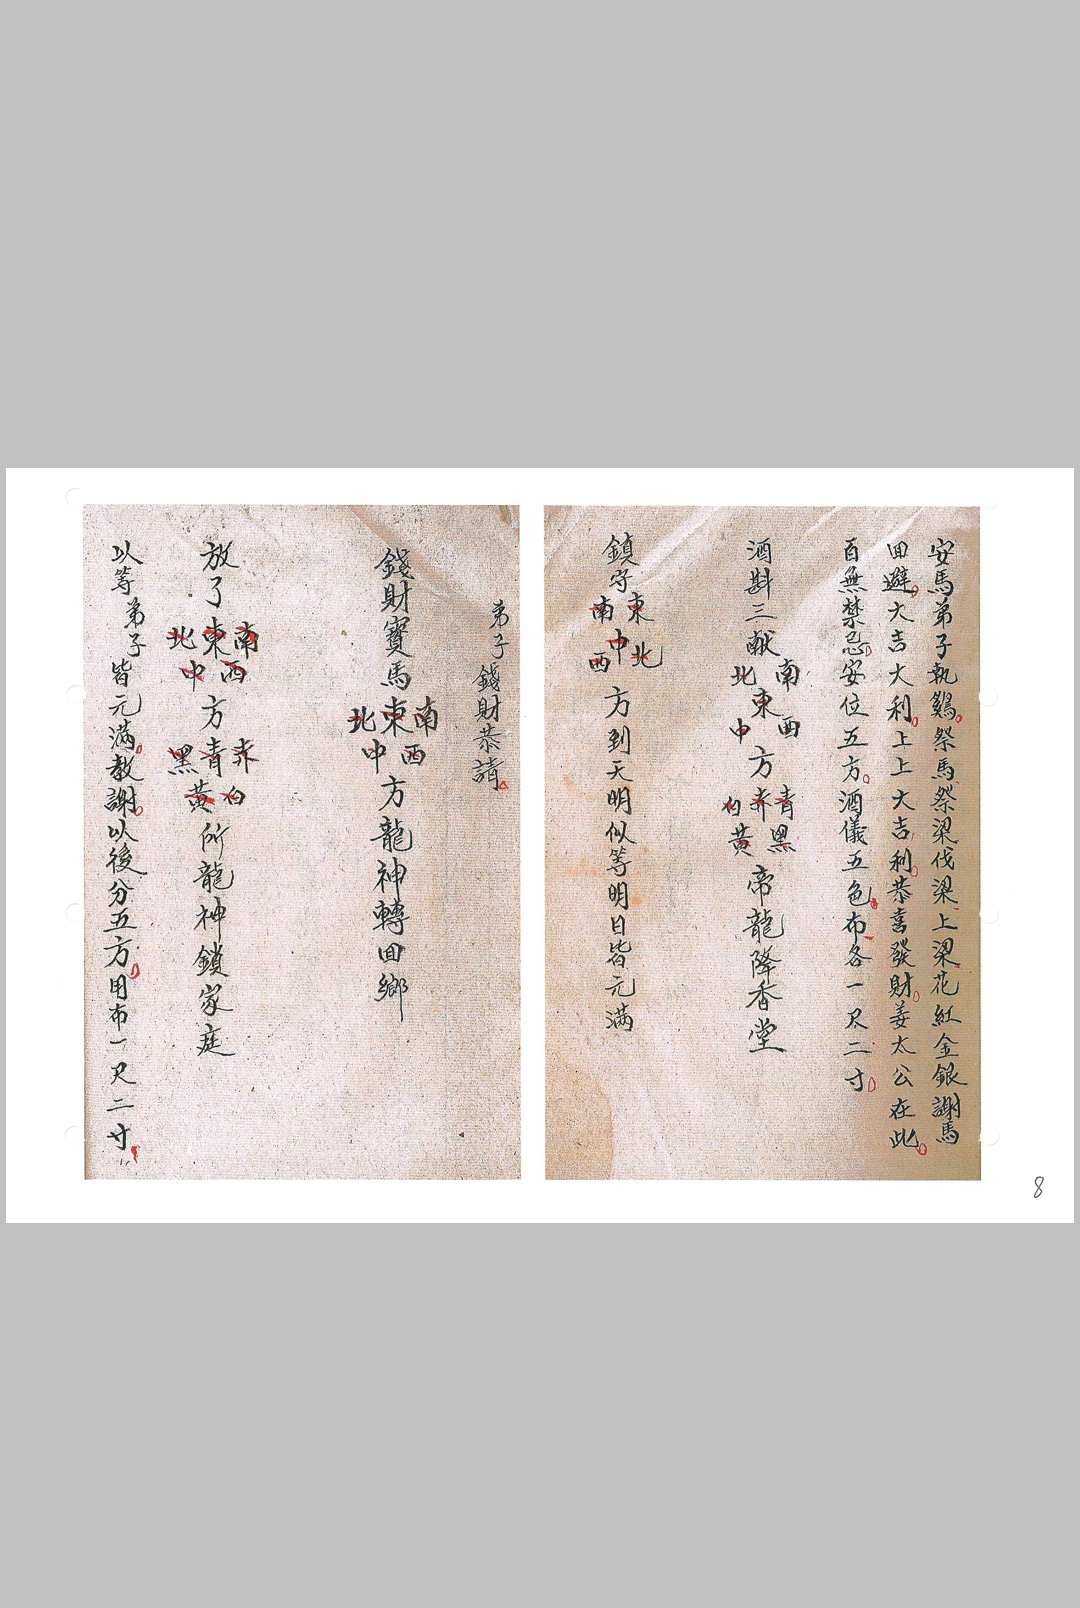 安馬弟子執鷄祭馬祭梁伐梁上梁花紅金銀謝馬
回避大吉大利上上大吉利恭喜發財姜太公在此
百無禁忌安位五方酒儀五色布各一尺二寸
酒斟三献
南東北
西中
方
青赤白
黑黃
帝龍降香堂
鎮守
東南
中
北西
方到天明似等明日皆元满
弟子錢財恭請
錢財寶馬
南東北
西中
方龍神轉回鄉
放了
南東北
西中
方
赤青黑
白黃
所龍神鎖家庭
以等弟子皆元满教謝以後分五方用布一尺二寸
8